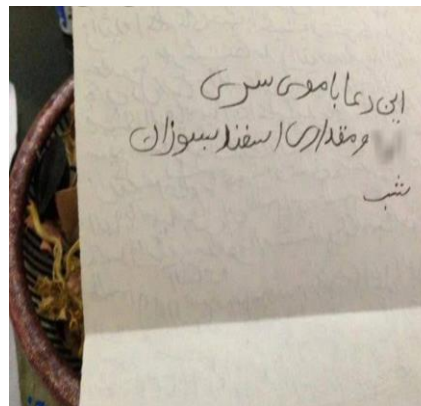 این دعا با موی سرش
و مقداری اسفند بسوزان
شب